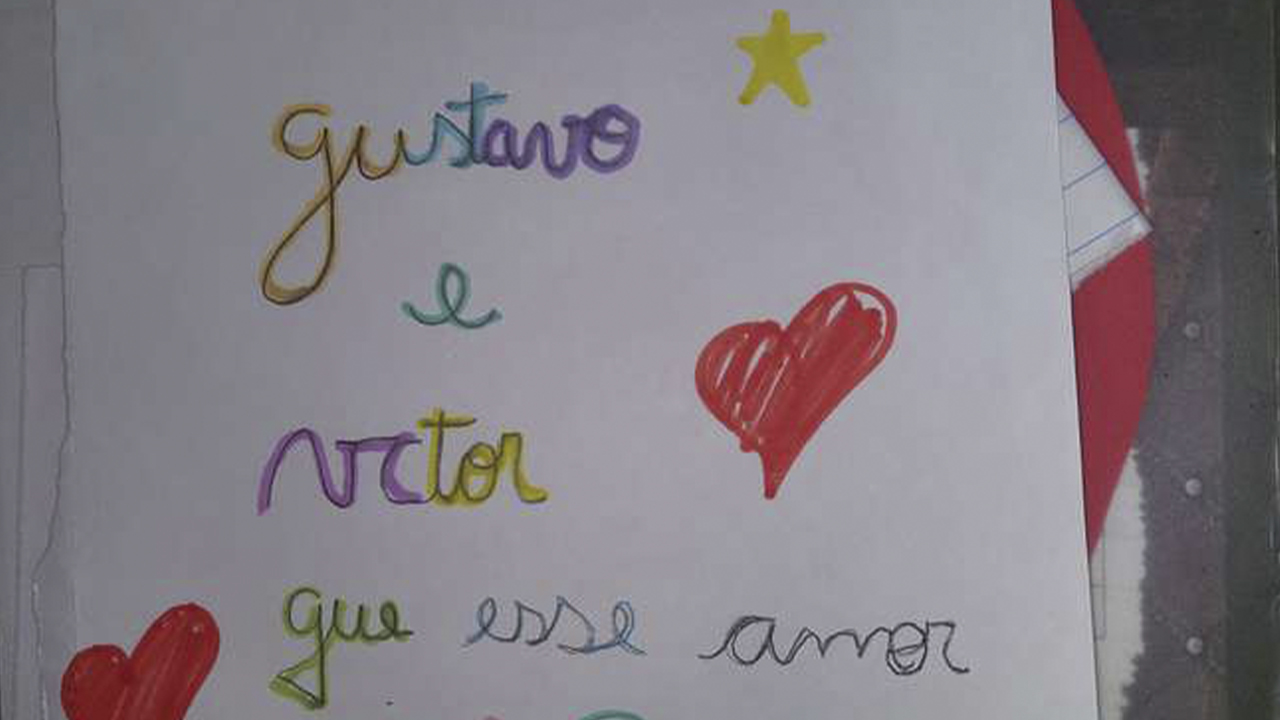 gustavo
e
victor
que esse amor